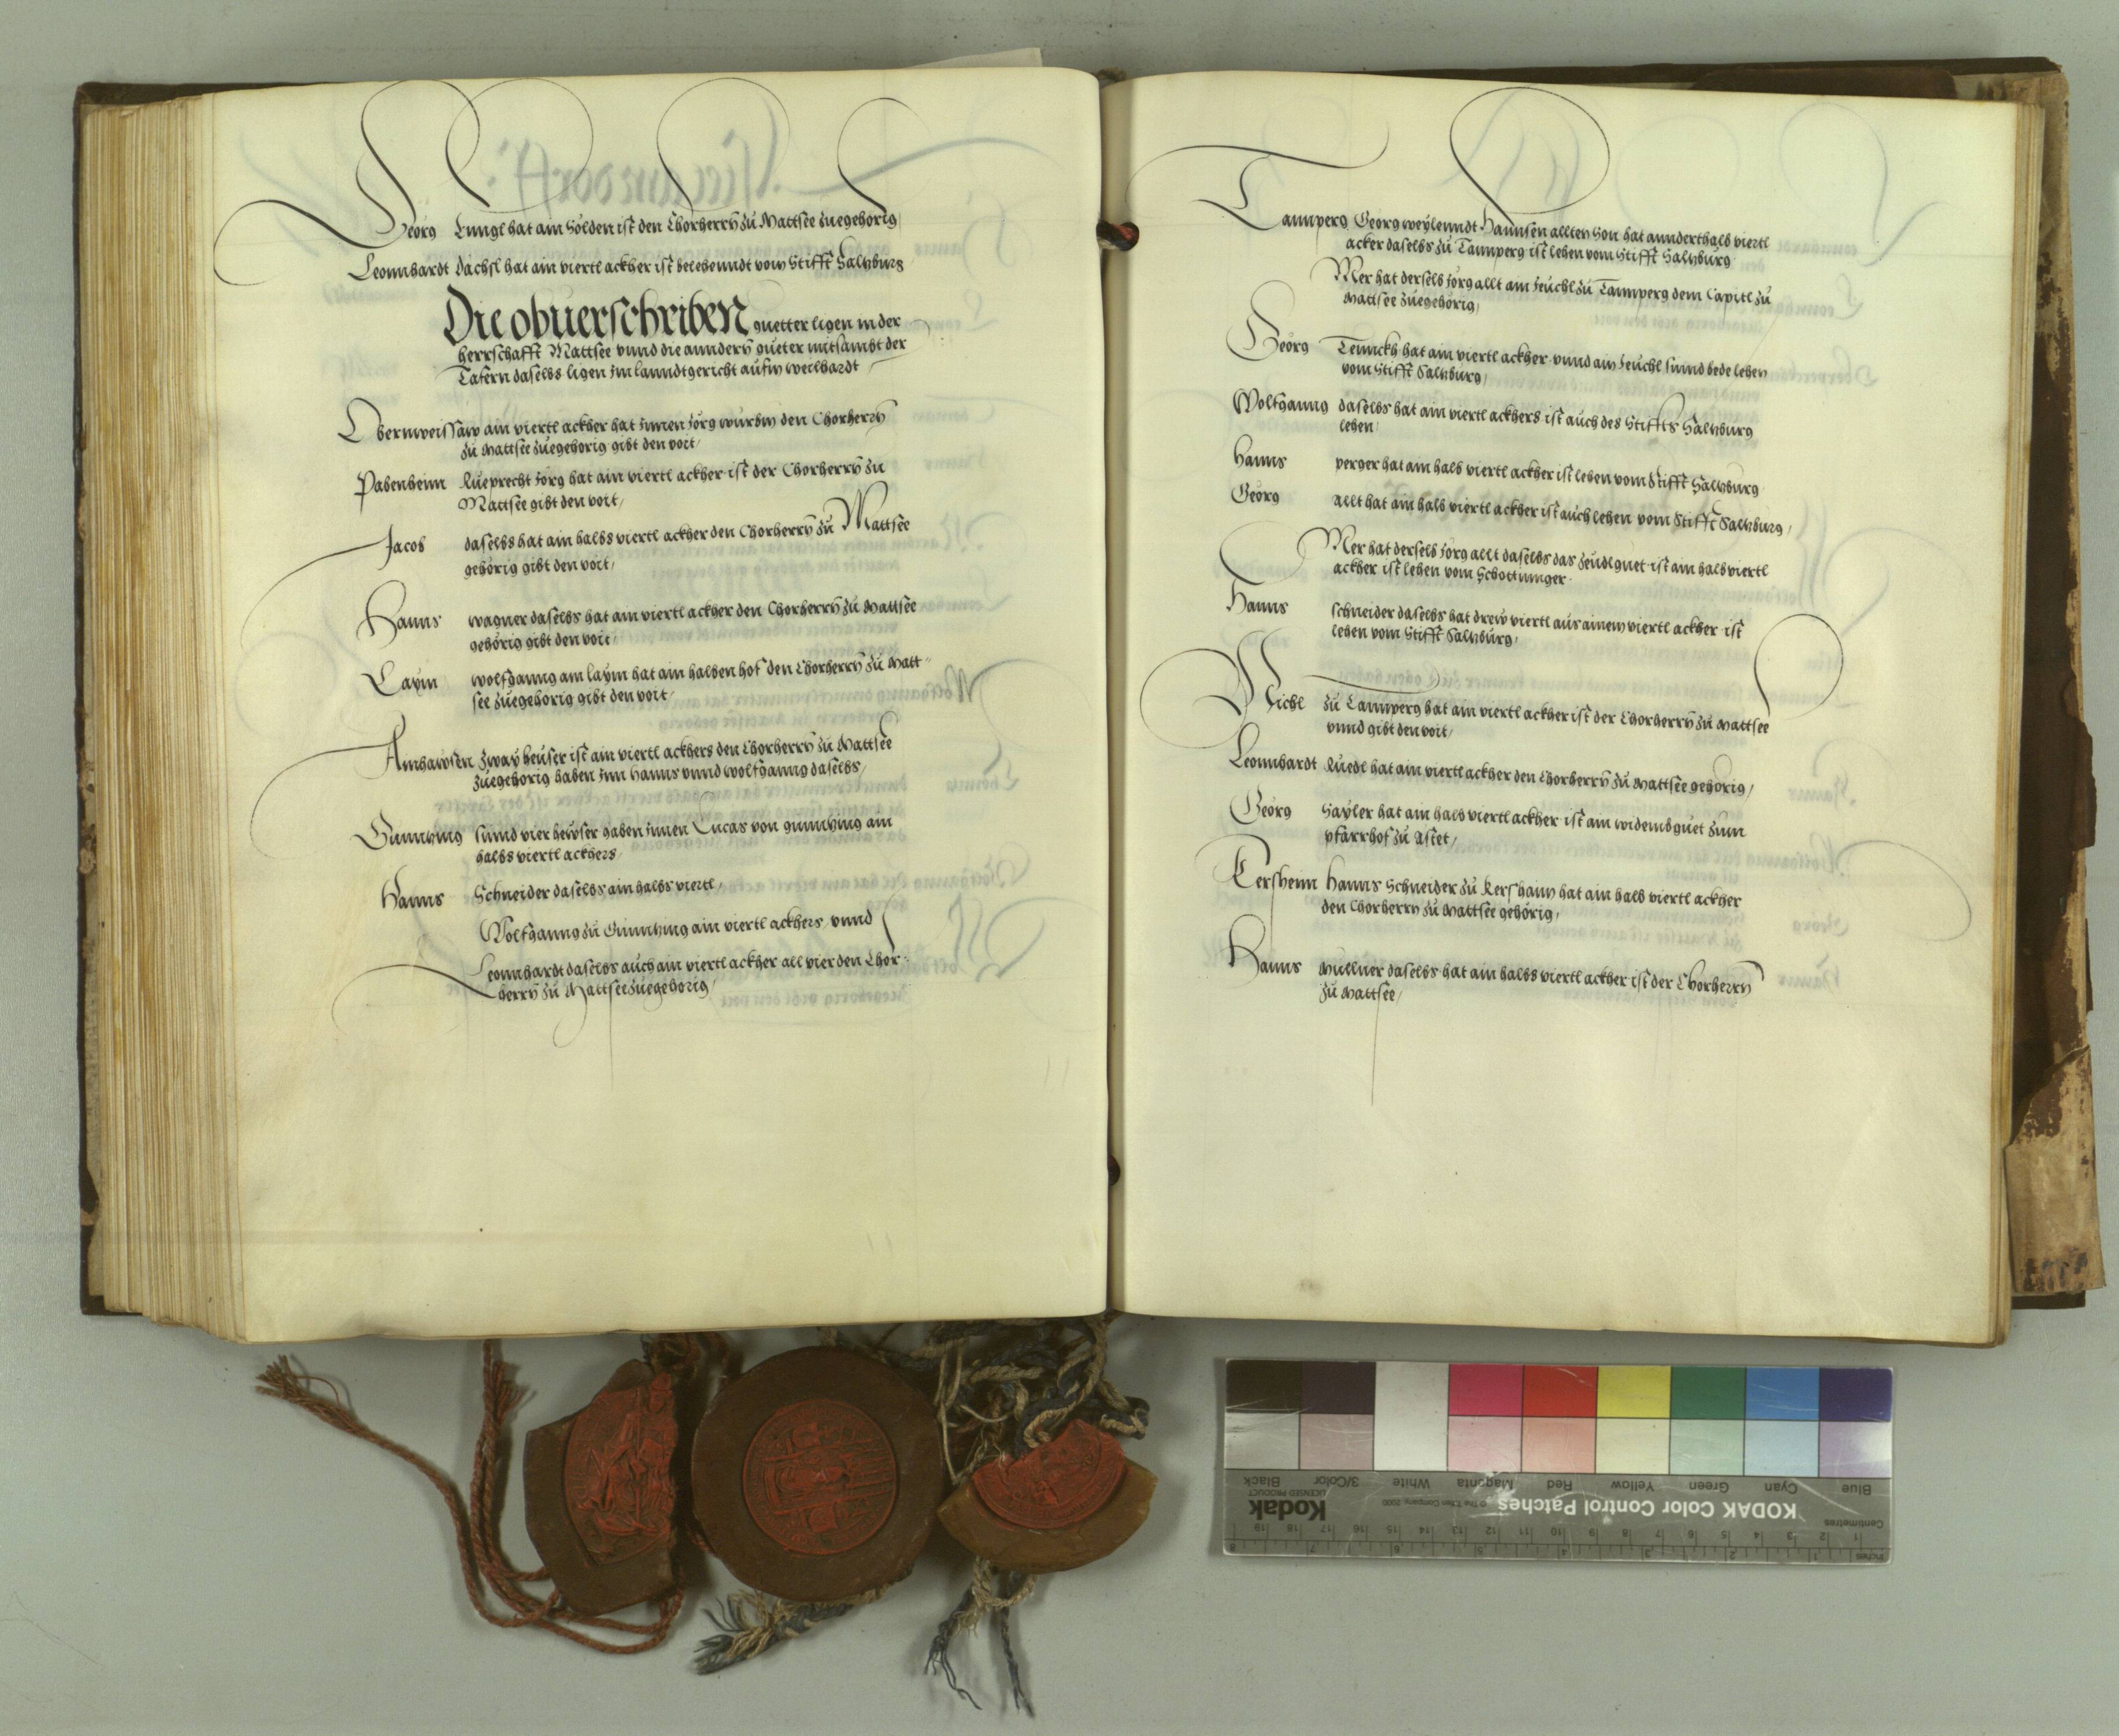 Georg Lungl hat ain Sölden ist den Chorherrn zu Mattsee zuegehorig
Leonnhardt dächsl hat ain viertl ackher ist belehenndt vom Stifft Saltzburg
Die obuerschriben guetter ligen in der
herrschafft Mattsee vnnd die anndern gueter mitsambt der
Tafern daselbs ligen im lanndtgericht aufm weilhardt
Obernweissaw ain viertl ackher hat Innen Jorg wurbm den Chorherrn
zu Mattsee zuegehorig gibt den voit
Pabenheim Rueprecht Jorg hat ain viertl ackher ist der Chorherrn zu
Mattsee gibt den voit
Jacob daselbs hat ain halbs viertl ackher den Chorherrn zu Mattsee
gehörig gibt den voit
Hanns wagner daselbs hat ain viertl ackher den Chorherrn zu Mattsee
gehörig gibt den voit
Laym wolfganng am laym hat ain halben hof den Chorherrn zu Matt
see zuegehorig gibt den voit
Amhawsen zway heuser ist ain viertl ackhers den Chorherrn zu Mattsee
zuegehorig haben Inn Hanns vnnd wolfganng daselbs
Gunntzing sinnd vier hewser haben Innen Lucas von gunntzing ain
halbs viertl ackhers
Hanns Schneider daselbs ain halbs viertl
Wolfganng zu Gunntzing ain viertl ackhers vnnd
Leonnhardt daselbs auch ain viertl ackher all vier den Chor
herrn zu Mattsee zuegehorig
Tannperg Georg weylenndt Hannsen allten Son hat annderthalb viertl
acker daselbs zu Tannperg ist lehen vom Stifft Saltzburg
Mer hat derselb Jorg allt ain zeuchl zu Tannperg dem Capitl zu
Mattsee zuegehörig
Georg Tennckh hat ain viertl ackher vnnd ain zeuchl sinnd bede lehen
vom Stifft Saltzburg
Wolfganng daselbs hat ain viertl ackhers ist auch des Stiffts Saltzburg
lehen
Hanns perger hat ain halb viertl ackher ist lehen vom Stifft Saltzburg
Georg allt hat ain halb viertl ackher ist auch lehen vom Stifft Saltzburg
Mer hat derselb Jorg allt daselbs das zeudlguet ist ain halb viertl
ackher ist lehen vom Schottinnger
Hanns schneider daselbs hat drew viertl aus ainem viertl ackher ist
lehen vom Stifft Saltzburg
Michl zu Tannperg hat ain viertl ackher ist der Chorherrn zu Mattsee
vnnd gibt den voit
Leonnhardt Ruedl hat ain viertl ackher den Chorherrn zu Mattsee gehörig
Georg Sayler hat ain halb viertl ackher ist ain widembguet zum
pfarrhof zu Astet
Kershenn Hanns Schneider zu Kershaim hat ain halb viertl ackher
den Chorherrn zu Mattsee gehörig
Hanns Mullner daselbs hat ain halbs viertl ackher ist der Chorherrn
zu Mattsee
Blue Cyan Green Yellow Red Magenta White 3/Color Black
KODAK Color Control Patches
Kodak
LICENSED PRODUCT
Centimetres
Inches